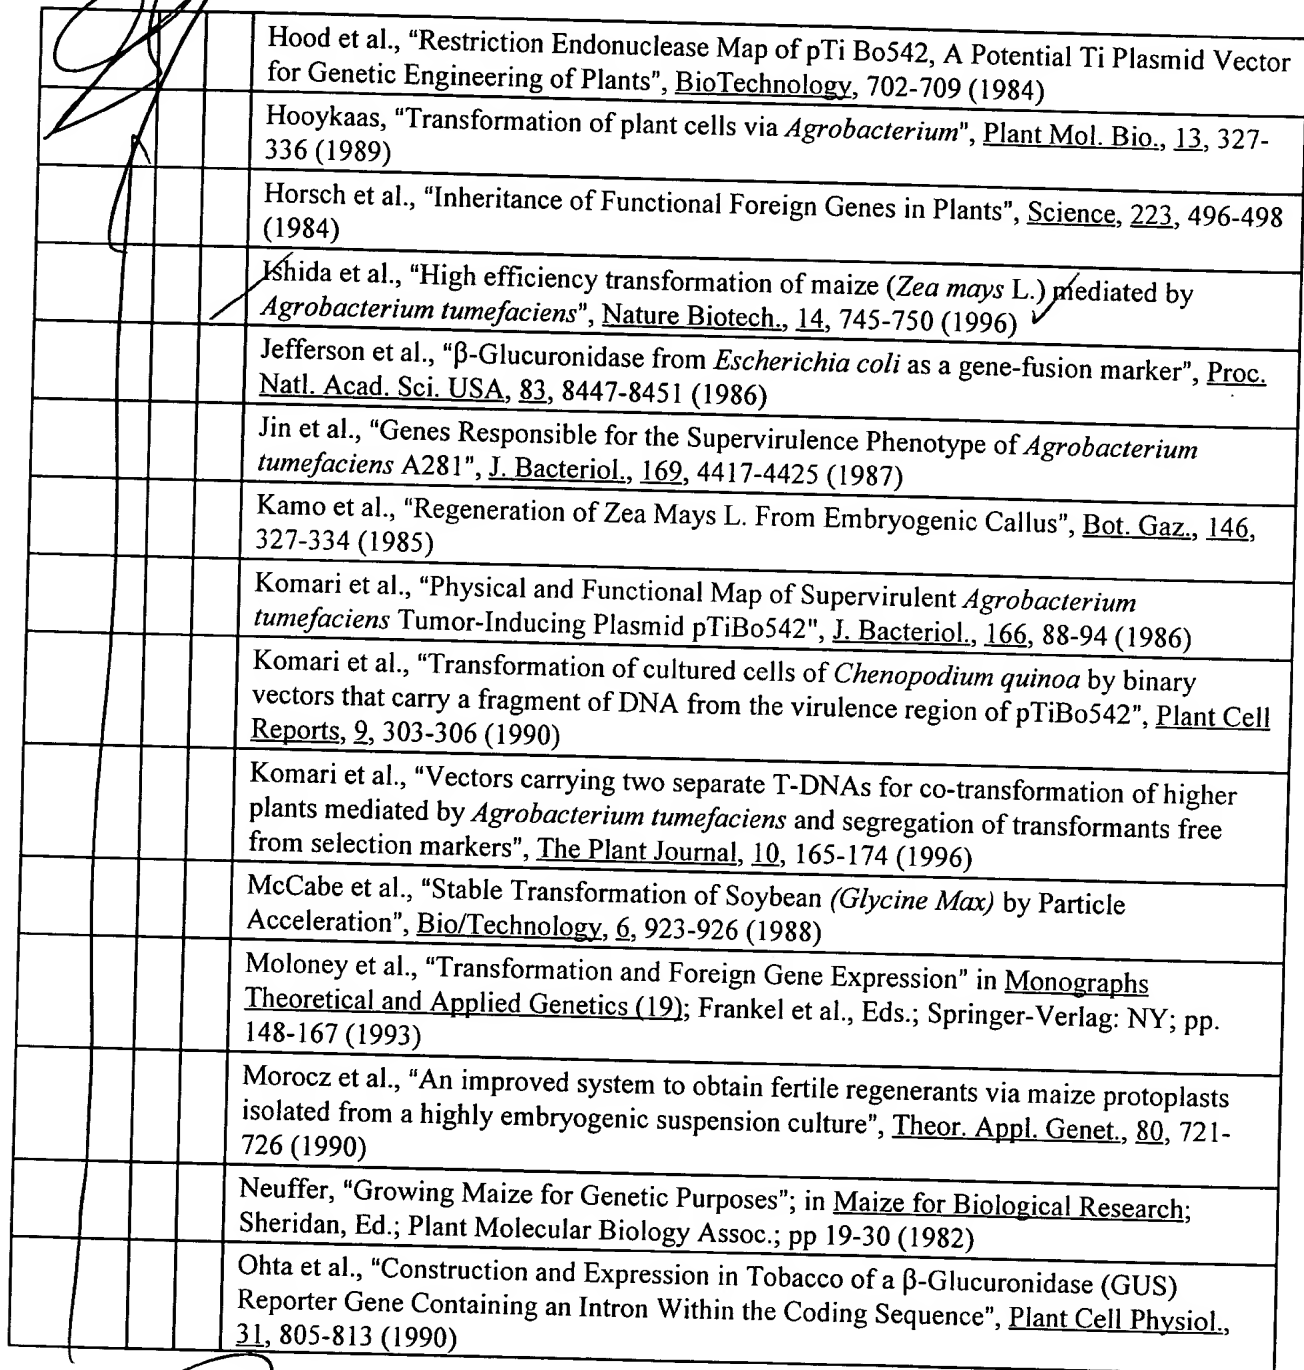 Hood et al., "Restriction Endonuclease Map of pTi Bo542, A Potential Ti Plasmid Vector
for Genetic Engineering of Plants", BioTechnology, 702-709 (1984)
Hooykaas, "Transformation of plant cells via Agrobacterium", Plant Mol. Bio., 13, 327-
336 (1989)
Horsch et al., "Inheritance of Functional Foreign Genes in Plants", Science, 223, 496-498
(1984)
Ishida et al., "High efficiency transformation of maize (Zea mays L.) mediated by
Agrobacterium tumefaciens", Nature Biotech., 14, 745-750 (1996)
Jefferson et al., "β-Glucuronidase from Escherichia coli as a gene-fusion marker", Proc.
Natl. Acad. Sci. USA, 83, 8447-8451 (1986)
Jin et al., "Genes Responsible for the Supervirulence Phenotype of Agrobacterium
tumefaciens A281", J. Bacteriol., 169, 4417-4425 (1987)
Kamo et al., "Regeneration of Zea Mays L. From Embryogenic Callus", Bot. Gaz., 146,
327-334 (1985)
Komari et al., "Physical and Functional Map of Supervirulent Agrobacterium
tumefaciens Tumor-Inducing Plasmid pTiBo542", J. Bacteriol., 166, 88-94 (1986)
Komari et al., "Transformation of cultured cells of Chenopodium quinoa by binary
vectors that carry a fragment of DNA from the virulence region of pTiBo542", Plant Cell
Reports, 9, 303-306 (1990)
Komari et al., "Vectors carrying two separate T-DNAs for co-transformation of higher
plants mediated by Agrobacterium tumefaciens and segregation of transformants free
from selection markers", The Plant Journal, 10, 165-174 (1996)
McCabe et al., "Stable Transformation of Soybean (Glycine Max) by Particle
Acceleration", Bio/Technology, 6, 923-926 (1988)
Moloney et al., "Transformation and Foreign Gene Expression" in Monographs
Theoretical and Applied Genetics (19); Frankel et al., Eds.; Springer-Verlag: NY; pp.
148-167 (1993)
Morocz et al., "An improved system to obtain fertile regenerants via maize protoplasts
isolated from a highly embryogenic suspension culture", Theor. Appl. Genet., 80, 721-
726 (1990)
Neuffer, "Growing Maize for Genetic Purposes"; in Maize for Biological Research;
Sheridan, Ed.; Plant Molecular Biology Assoc.; pp 19-30 (1982)
Ohta et al., "Construction and Expression in Tobacco of a β-Glucuronidase (GUS)
Reporter Gene Containing an Intron Within the Coding Sequence", Plant Cell Physiol.,
31, 805-813 (1990)